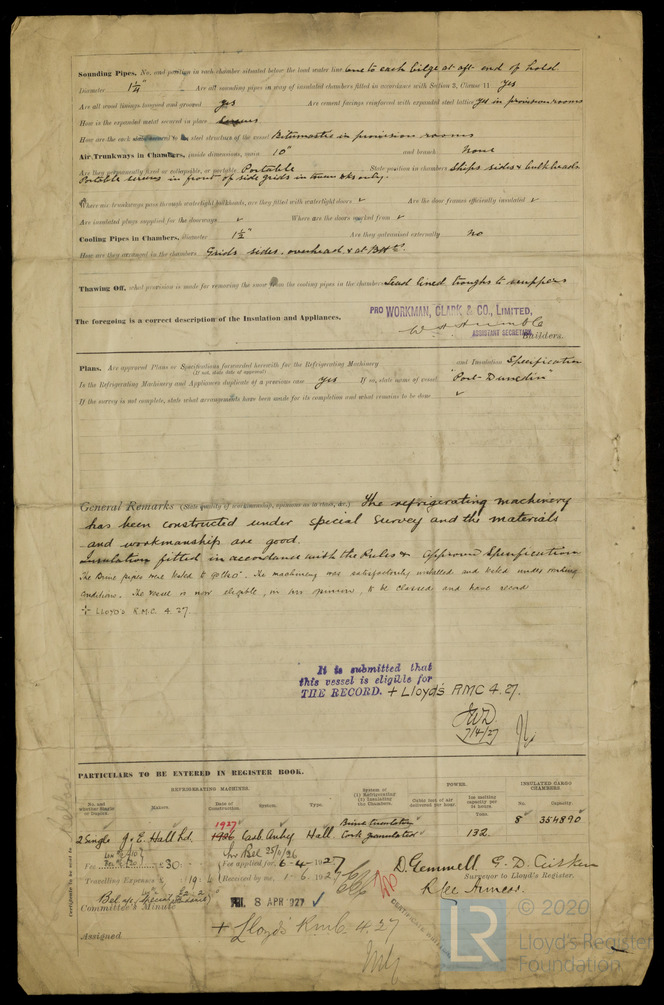 Sounding Pipes, No. and position in each chamber situated below the load water line one to each bilge at aft end of hold.
Diameter 1¼" Are all sounding pipes in way of insulated chambers fitted in accordance with Section 3, Clause 11 Yes
Are all wood linings tongued and grooved yes Are cement facings reinforced with expanded steel lattice Yes in provision rooms
How is the expanded metal secured in place
How are the cork secured to the steel structure of the vessel Bitumastic in provision rooms
Air Trunkways in Chambers, inside dimensions, main 10" and branch None
Are they permanently fixed or collapsible, or portable Portable State position in chambers Ships sides & bulkheads
Portable screens in front of side grids in only.
Where air trunkways pass through watertight bulkheads, are they fitted with watertight doors ✓ Are the door frames efficiently insulated ✓
Are insulated plugs supplied for the doorways ✓ Where are the doors worked from ✓
Cooling Pipes in Chambers, diameter 1½" Are they galvanised externally No
How are they arranged in the chambers Grids sides, overhead & at BHds.
Thawing Off, what provision is made for removing the snow from the cooling pipes in the chambers Lead lined troughs to scuppers
PRO WORKMAN, CLARK & CO., LIMITED,
The foregoing is a correct description of the Insulation and Appliances.
ASSISTANT SECRETARY Builders.
Plans. Are approved Plans or Specifications forwarded herewith for the Refrigerating Machinery and Insulation Specification
(If not, state date of approval)
Is the Refrigerating Machinery and Appliances duplicate of a previous case yes If so, state name of vessel "Port Dunedin"
If the survey is not complete, state what arrangements have been made for its completion and what remains to be done ✓
General Remarks (State quality of workmanship, opinions as to class, &c.) The refrigerating machinery
has been constructed under special survey and the materials
and workmanship are good.
Insulation fitted in accordance with the Rules & Approved Specification
The Brine pipes were tested to The machinery was satisfactorily installed and tested under working
conditions. The vessel is now eligible, in our opinion, to be classed and have record
+ Lloyd's R.M.C. 4.27
It is submitted that
this vessel is eligible for
THE RECORD. + Lloyd's RMC 4.27.
7/4/27
PARTICULARS TO BE ENTERED IN REGISTER BOOK.
REFRIGERATING MACHINES. POWER. INSULATED CARGO CHAMBERS
No. and whether Single or Duplex. Makers. Date of Construction. System. Type. System of (1) Refrigerating (2) Insulating the Chambers. Cubic feet of air delivered per hour. Ice melting capacity per 24 hours. Tons. No. Capacity.
1927 Brine circulation 8 354890
2 Single J & E. Hall Ld. 1926 Carb. Anhy. Hall Cork granulated 132
25/11/26
Fee £30 Fee applied for 6-4-1927
D. Gemmell G. D. Aitken
Travelling Expenses £ Received by me, 1-6-1927 Surveyor to Lloyd's Register.
Committee's Minute FRI. 8 APR 1927
Assigned + Lloyd's RMC 4.27
CERTIFICATE WRITTEN
Certificate to be sent to Belfast
LR
© 2020
Lloyd's Register
Foundation